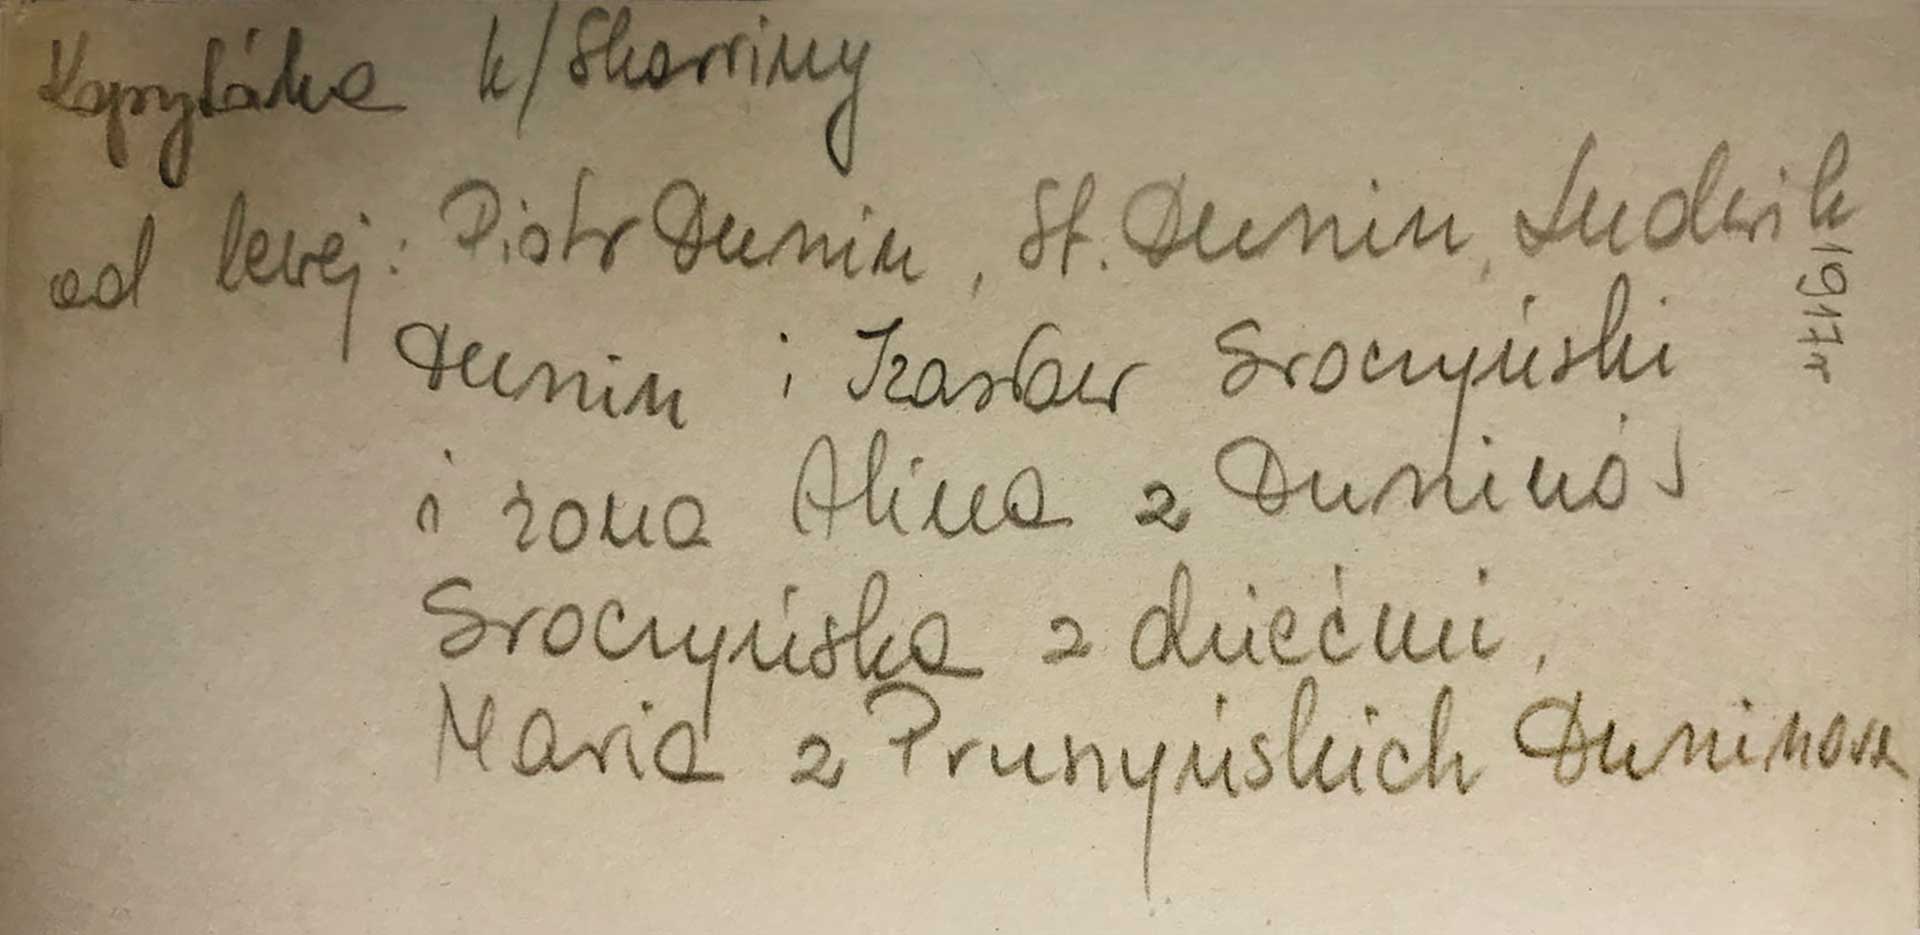 k/Skarżiny
od lewej: Piotr Dunin, St. Dunin, Ludwik
Dunin i Ksawer Sroczyński
i żona Alina z Duninów
Sroczyńska z dziećmi,
Maria z Pruszyńskich Duninowa
1917r